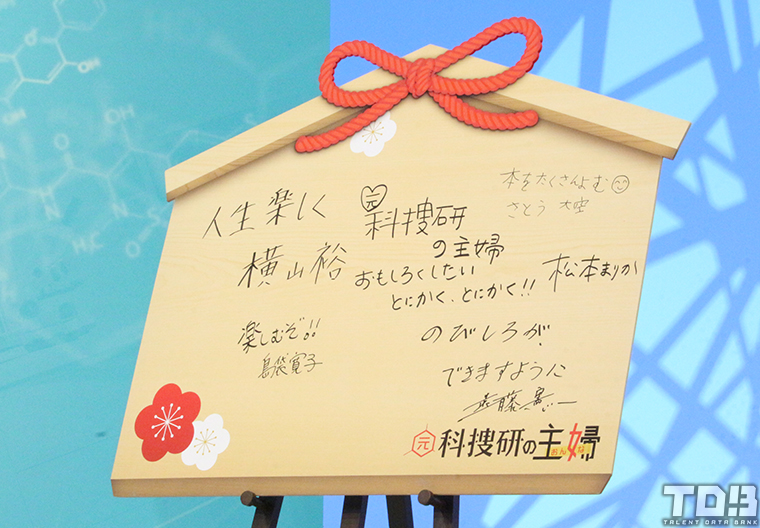 人生 楽しく
横山裕
元
科捜研
の主婦
おもしろくしたい
とにかく、とにかく!!
松本まりか
本をたくさんよむ
さとう 大空
楽しむぞ!!
島袋寛子
のびしろが
できますように
遠藤憲一
元 科捜研の主婦
おんな
OH
HN
O
SH
HC
TDB
TALENT DATA BANK